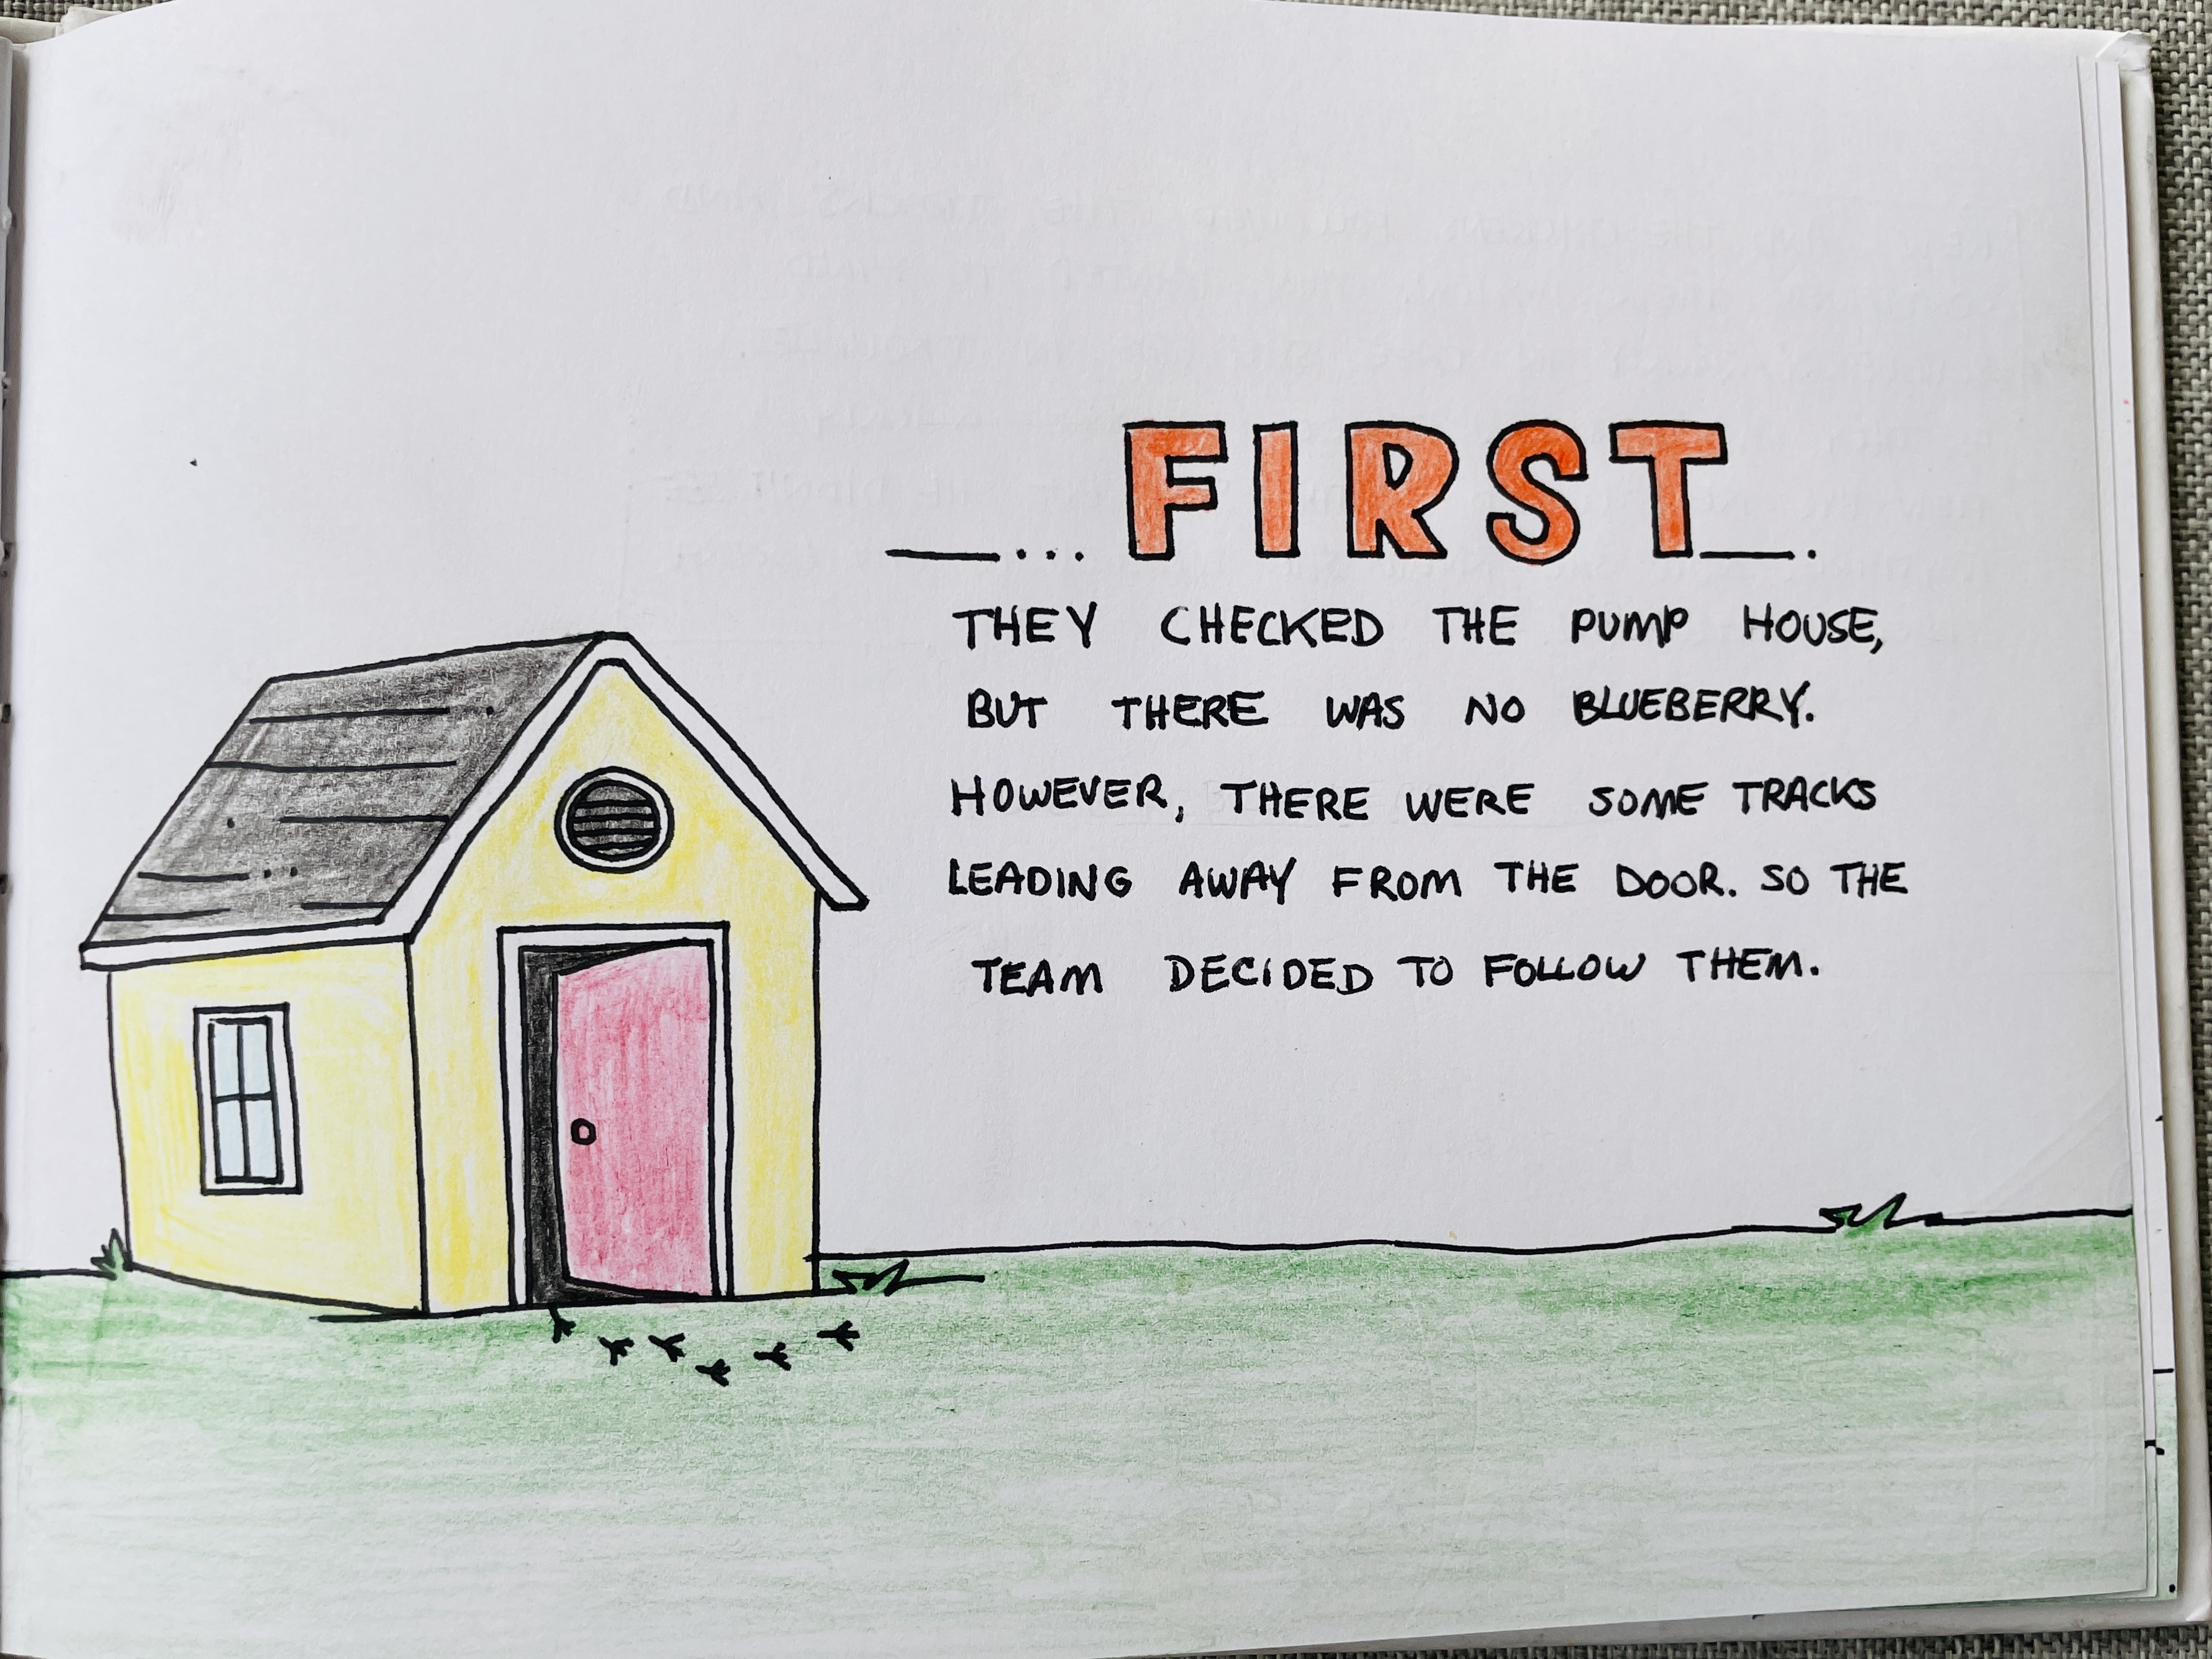 FIRST
THEY CHECKED THE PUMP HOUSE,
BUT THERE WAS NO BLUEBERRY.
HOWEVER, THERE WERE SOME TRACKS
LEADING AWAY FROM THE DOOR. SO THE
TEAM DECIDED TO FOLLOW THEM.